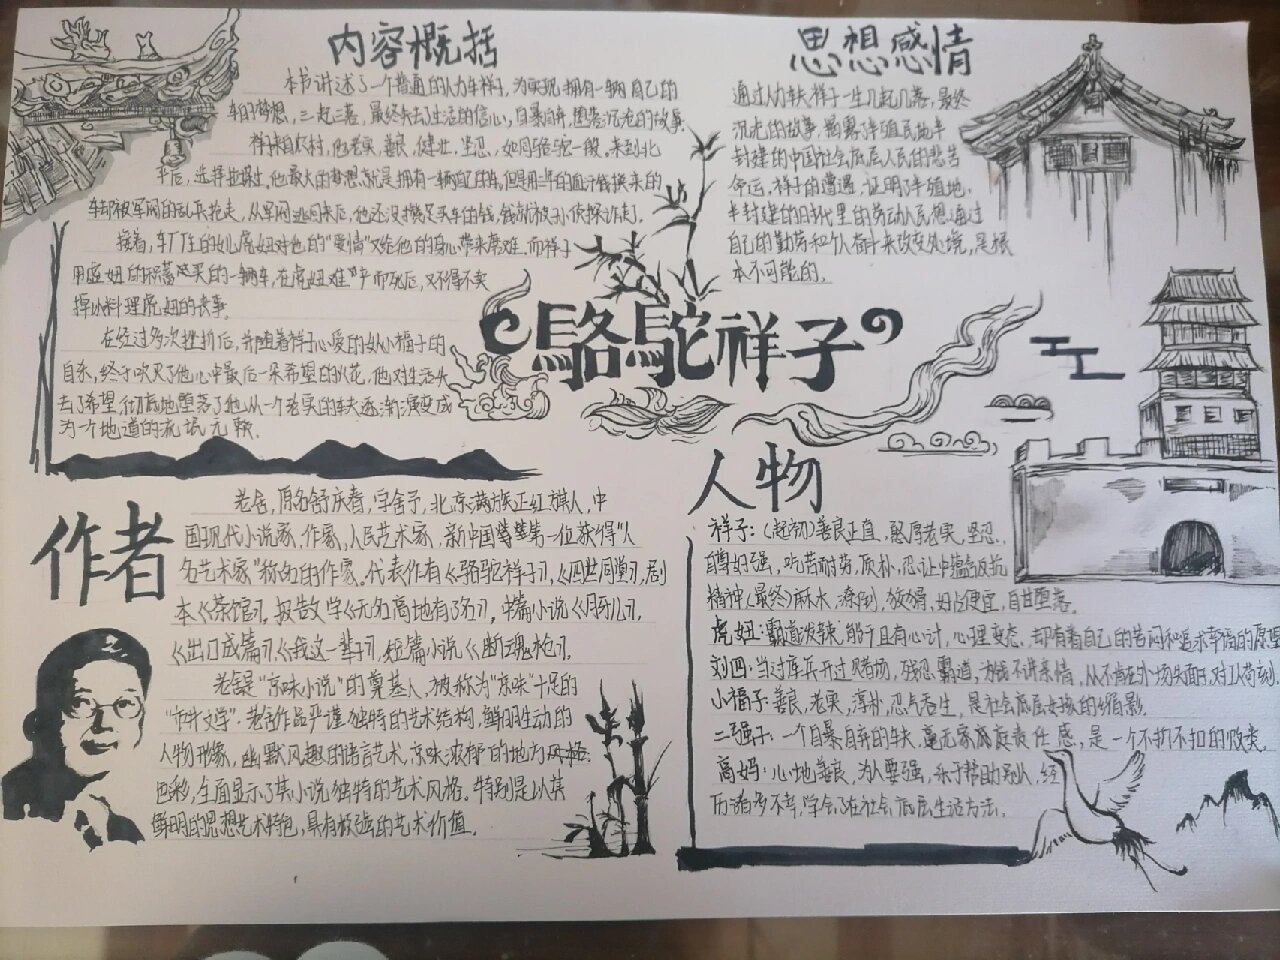 内容概括
本书讲述了一个普通的人力车祥子,为实现拥有一辆自己的
车的梦想,三起三落,最终失去了生活的信心,自暴自弃,堕落沉沦的故事.
祥子来自农村,他老实,善良,健壮,坚忍,如同骆驼一般,来到北
平后,选择拉车,他最大的梦想就是拥有一辆自己的车.但是用三年的血汗钱换来的
车却被军阀的乱兵抢走,从军阀逃回来后,他还没攒足买车的钱,钱就被孙侦探诈走了.
接着,车厂主的女儿虎妞对他的“爱情”又给他的身心带来磨难.而祥子
用虎妞的积蓄买的一辆车,在虎妞难产而死后,又不得不卖
掉以料理虎妞的丧事.
在经过多次挫折后,并随着祥子心爱的女人小福子的
自杀,终于吹灭了他心中最后一朵希望的火花,他对生活失
去了希望,彻底地堕落了他,从一个老实的车夫逐渐演变成
为一个地道的流氓无赖.
思想感情
通过人力车夫祥子一生几起几落,最终
沉沦的故事,揭露了半殖民地半
封建的中国社会底层人民的悲苦
命运,祥子的遭遇,证明了半殖地,
半封建的时代里的劳动人民想通过
自己的勤劳和个人奋斗来改变处境,是根
本不可能的.
骆駝祥子
作者
老舍,原名舒庆春,字舍予,北京满族正红旗人,中
国现代小说家,作家,人民艺术家,新中国第一位获得“人
民艺术家”称号的作家.代表作有《骆驼祥子》,《四世同堂》,剧
本《茶馆》,报告文学《无名高地有了名》,中篇小说《月牙儿》,
《出口成篇》《我这一辈子》,短篇小说《断魂枪》.
老舍是“京味小说”的奠基人,被称为“京味”十足的
“市井文学”.老舍作品严谨独特的艺术结构,鲜明生动的
人物形象,幽默风趣的语言艺术,京味浓郁的地方风格
色彩,全面显示了其小说独特的艺术风格.特别是以其
鲜明的思想艺术特色,具有较强的艺术价值.
人物
祥子:(起初)善良正直,憨厚老实,坚忍,
自尊好强,吃苦耐劳,质朴,忍让中蕴含反抗
精神(最终)麻木,潦倒,狡猾,好占便宜,自甘堕落.
虎妞:霸道泼辣,能干且有心计,心理变态,却有着自己的苦闷和追求幸福的原望
刘四:当过库兵开过赌场,残忍霸道,讲亲情,从不肯在外场失面子,对人苛刻.
小福子:善良,老实,淳朴,忍气吞生,是社会底层女孩的缩影.
二强子:一个自暴自弃的车夫,毫无家庭责任感,是一个不折不扣的败类.
高妈:心地善良,为人要强,乐于帮助别人,经
历诸多不幸,学会了在社会底层生活方法.